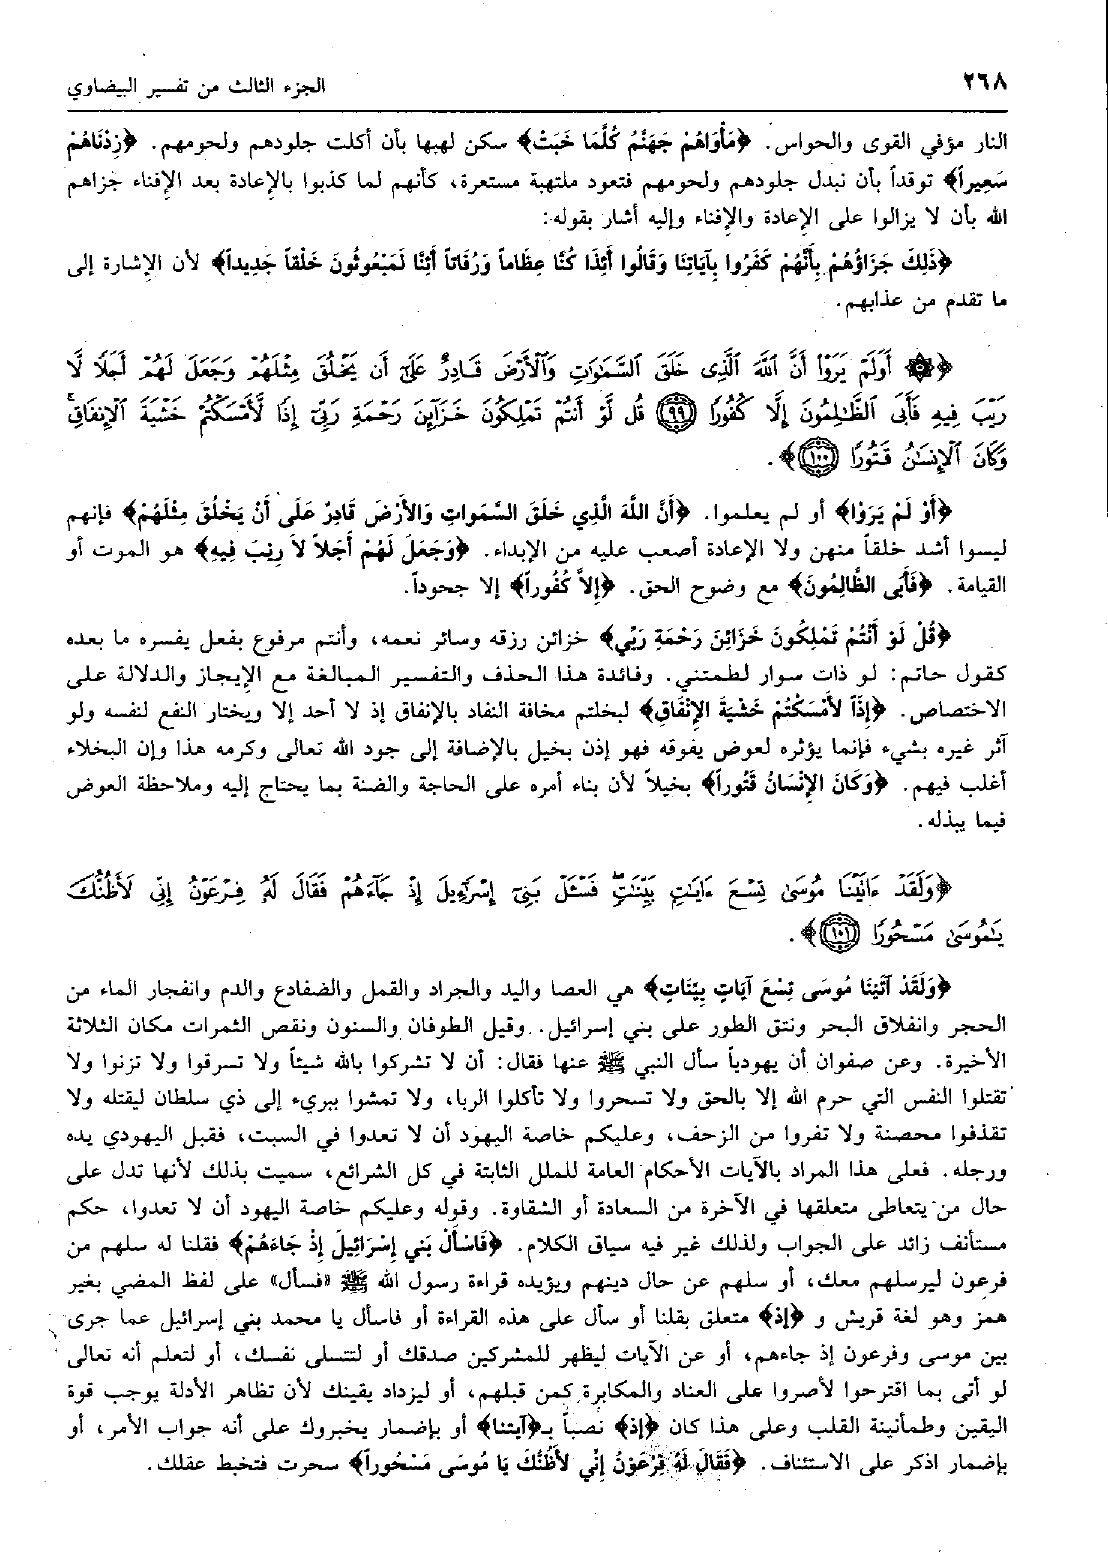 ٢٦٨
الجزء الثالث من تفسير البيضاوي
النار مؤفي القوى والحواس. ﴿مَأْوَاهُمْ جَهَنَّمُ كُلَّمَا خَبَتْ﴾ سكن لهبها بأن أكلت جلودهم ولحومهم. ﴿زِدْنَاهُمْ
سَعِيراً﴾ توقداً بأن نبدل جلودهم ولحومهم فتعود ملتهبة مستعرة، كأنهم لما كذبوا بالإعادة بعد الإفناء جزاهم
الله بأن لا يزالوا على الإعادة والإفناء وإليه أشار بقوله:
﴿ذَلِكَ جَزَاؤُهُمْ بِأَنَّهُمْ كَفَرُوا بِآيَاتِنَا وَقَالُوا أَئِذَا كُنَّا عِظَاماً وَرُفَاتاً أَئِنَّا لَمَبْعُوثُونَ خَلْقاً جَدِيداً﴾ لأن الإشارة إلى
ما تقدم من عذابهم.
﴿۞ أَوَلَمْ يَرَوْا أَنَّ ٱللَّهَ ٱلَّذِى خَلَقَ ٱلسَّمَٰوَٰتِ وَٱلْأَرْضَ قَادِرٌ عَلَىٰٓ أَن يَخْلُقَ مِثْلَهُمْ وَجَعَلَ لَهُمْ أَجَلًا لَّا
رَيْبَ فِيهِ فَأَبَى ٱلظَّٰلِمُونَ إِلَّا كُفُورًا ﴿٩٩﴾ قُل لَّوْ أَنتُمْ تَمْلِكُونَ خَزَآئِنَ رَحْمَةِ رَبِّىٓ إِذًا لَّأَمْسَكْتُمْ خَشْيَةَ ٱلْإِنفَاقِۚ
وَكَانَ ٱلْإِنسَٰنُ قَتُورًا ﴿١٠٠﴾﴾.
﴿أَوْ لَمْ يَرَوْا﴾ أو لم يعلموا. ﴿أَنَّ اللَّهَ الَّذِي خَلَقَ السَّمَواتِ وَالأَرْضَ قَادِرٌ عَلَى أَنْ يَخْلُقَ مِثْلَهُمْ﴾ فإنهم
ليسوا أشد خلقاً منهن ولا الإعادة أصعب عليه من الإبداء. ﴿وَجَعَلَ لَهُمْ أَجَلاً لاَ رَيْبَ فِيهِ﴾ هو الموت أو
القيامة. ﴿فَأَبَى الظَّالِمُونَ﴾ مع وضوح الحق. ﴿إِلاَّ كُفُوراً﴾ إلا جحوداً.
﴿قُلْ لَوْ أَنْتُمْ تَمْلِكُونَ خَزَائِنَ رَحْمَةِ رَبِّي﴾ خزائن رزقه وسائر نعمه، وأنتم مرفوع بفعل يفسره ما بعده
كقول حاتم: لو ذات سوار لطمتني. وفائدة هذا الحذف والتفسير المبالغة مع الإيجاز والدلالة على
الاختصاص. ﴿إِذَاً لأَمْسَكْتُمْ خَشْيَةَ الإِنْفَاقِ﴾ لبخلتم مخافة النفاد بالإنفاق إذ لا أحد إلا ويختار النفع لنفسه ولو
آثر غيره بشيء فإنما يؤثره لعوض يفوقه فهو إذن بخيل بالإضافة إلى جود الله تعالى وكرمه هذا وإن البخلاء
أغلب فيهم. ﴿وَكَانَ الإِنْسَانُ قَتُوراً﴾ بخيلاً لأن بناء أمره على الحاجة والضنة بما يحتاج إليه وملاحظة العوض
فيما يبذله.
﴿وَلَقَدْ ءَاتَيْنَا مُوسَىٰ تِسْعَ ءَايَٰتٍۭ بَيِّنَٰتٍۖ فَسْـَٔلْ بَنِىٓ إِسْرَٰٓءِيلَ إِذْ جَآءَهُمْ فَقَالَ لَهُۥ فِرْعَوْنُ إِنِّى لَأَظُنُّكَ
يَٰمُوسَىٰ مَسْحُورًا ﴿١٠١﴾﴾.
﴿وَلَقَدْ آتَيْنَا مُوسَى تِسْعَ آيَاتٍ بَيِّنَاتٍ﴾ هي العصا واليد والجراد والقمل والضفادع والدم وانفجار الماء من
الحجر وانفلاق البحر ونتق الطور على بني إسرائيل. وقيل الطوفان والسنون ونقص الثمرات مكان الثلاثة
الأخيرة. وعن صفوان أن يهودياً سأل النبي ﷺ عنها فقال: أن لا تشركوا بالله شيئاً ولا تسرقوا ولا تزنوا ولا
تقتلوا النفس التي حرم الله إلا بالحق ولا تسحروا ولا تأكلوا الربا، ولا تمشوا ببريء إلى ذي سلطان ليقتله ولا
تقذفوا محصنة ولا تفروا من الزحف، وعليكم خاصة اليهود أن لا تعدوا في السبت، فقبل اليهودي يده
ورجله. فعلى هذا المراد بالآيات الأحكام العامة للملل الثابتة في كل الشرائع، سميت بذلك لأنها تدل على
حال من يتعاطى متعلقها في الآخرة من السعادة أو الشقاوة. وقوله وعليكم خاصة اليهود أن لا تعدوا، حكم
مستأنف زائد على الجواب ولذلك غير فيه سياق الكلام. ﴿فَاسْأَلْ بَنِي إِسْرَائِيلَ إِذْ جَاءَهُمْ﴾ فقلنا له سلهم من
فرعون ليرسلهم معك، أو سلهم عن حال دينهم ويؤيده قراءة رسول الله ﷺ «فسأل» على لفظ المضي بغير
همز وهو لغة قريش و ﴿إذ﴾ متعلق بقلنا أو سأل على هذه القراءة أو فاسأل يا محمد بني إسرائيل عما جرى
بين موسى وفرعون إذ جاءهم، أو عن الآيات ليظهر للمشركين صدقك أو لتتسلى نفسك، أو لتعلم أنه تعالى
لو أتى بما اقترحوا لأصروا على العناد والمكابرة كمن قبلهم، أو ليزداد يقينك لأن تظاهر الأدلة يوجب قوة
اليقين وطمأنينة القلب وعلى هذا كان ﴿إذ﴾ نصباً بـ﴿آيتنا﴾ أو بإضمار يخبروك على أنه جواب الأمر، أو
بإضمار اذكر على الاستئناف. ﴿فَقَالَ لَهُ فِرْعَوْنُ إِنِّي لأَظُنُّكَ يَا مُوسَى مَسْحُوراً﴾ سحرت فتخبط عقلك.